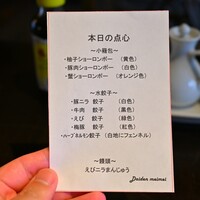 本日の点心
～小籠包～
・柚子ショーロンポー （黄色）
・豚肉ショーロンポー （白色）
・蟹ショーロンポー （オレンジ色）
～水餃子～
・豚ニラ 餃子 （白色）
・牛肉 餃子 （黒色）
・えび 餃子 （緑色）
・梅豚 餃子 （紅色）
・ハーブ＆ルモン餃子 （白地にフェンネル）
～饅頭～
えびニラまんじゅう